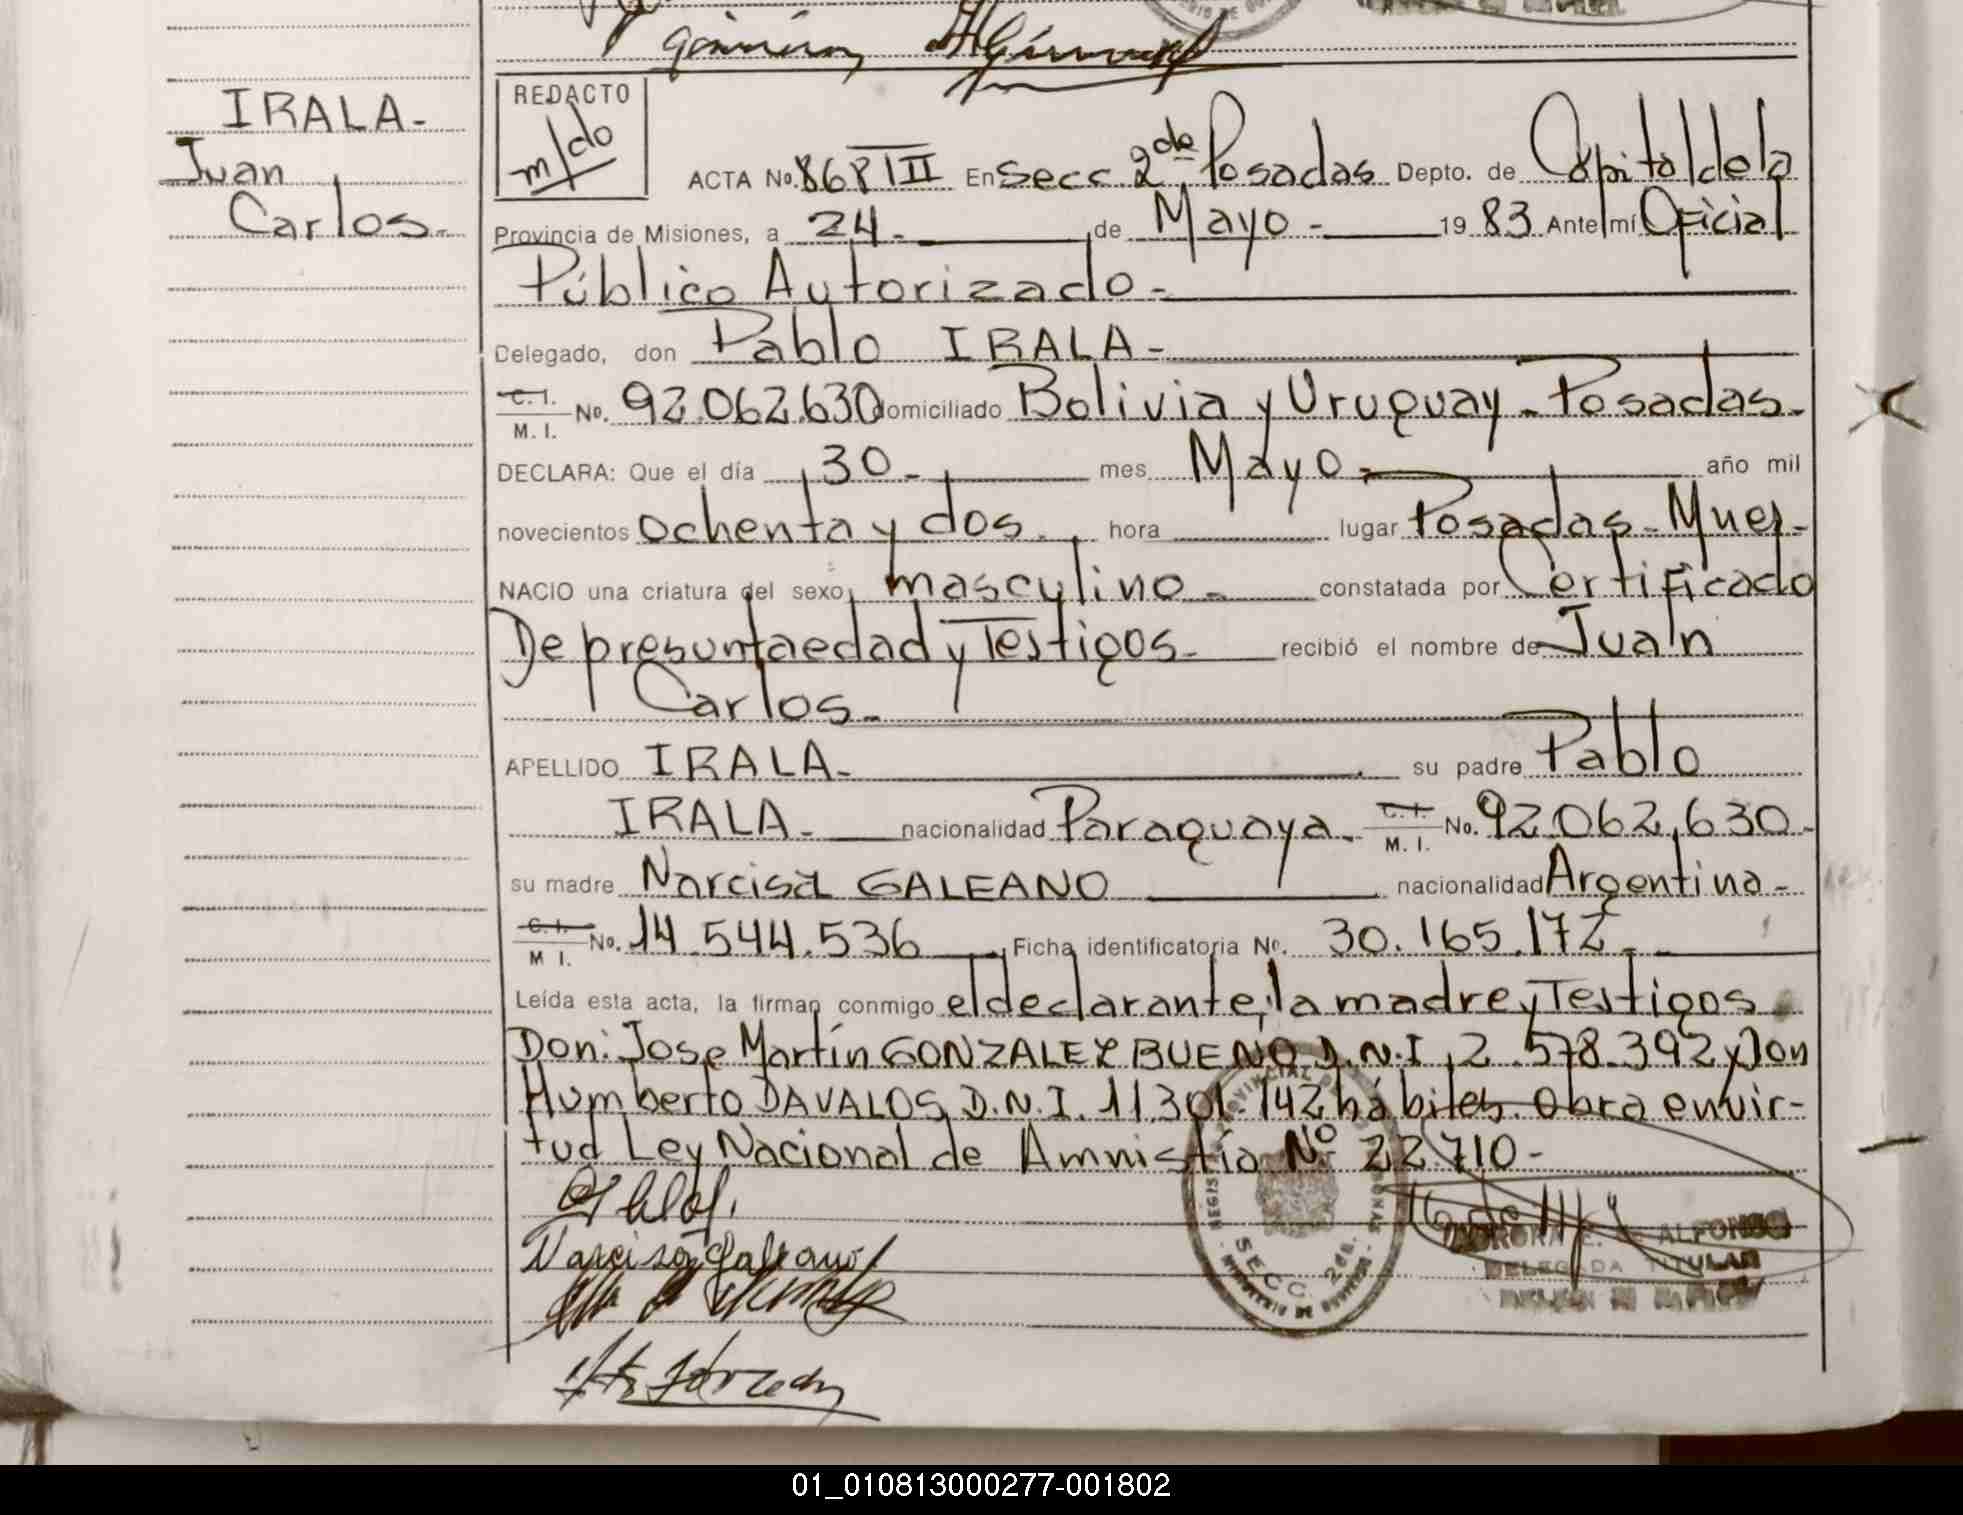 IRALA-
Juan
Carlos-
REDACTO
m/do
ACTA No. 868 III En Secc 2da de Posadas Depto. de Capital de la
Provincia de Misiones, a 24- de Mayo- 1983 Ante mí Oficial
Público Autorizado-
Delegado, don Pablo IRALA-
C. I.
M. I. No. 92.062.630 domiciliado Bolivia y Uruguay - Posadas-
DECLARA: Que el día 30- mes Mayo- año mil
novecientos ochenta y dos- hora lugar Posadas-Mnes-
NACIO una criatura del sexo masculino- constatada por Certificado
De presunta edad y Testigos- recibió el nombre de Juan
Carlos-
APELLIDO IRALA- su padre Pablo
IRALA- nacionalidad Paraguaya- C. I. M. I. No. 92.062.630-
su madre Narcisa GALEANO nacionalidad Argentina-
C. I. M I. No. 14.544.536 Ficha identificatoria No. 30.165.172-
Leída esta acta, la firman conmigo el declarante, la madre y Testigos
Don: Jose Martín GONZALEZ BUENO D.N.I. 2.578.392 y Don
Humberto DAVALOS D.N.I. 11.301.142 hábiles. Obra en vir-
tud Ley Nacional de Amnistía Nº 22.710-
Narcisa Galeano
SECC. 2da.
E. de ALFONSO
DELEGADA TITULAR
01_010813000277-001802